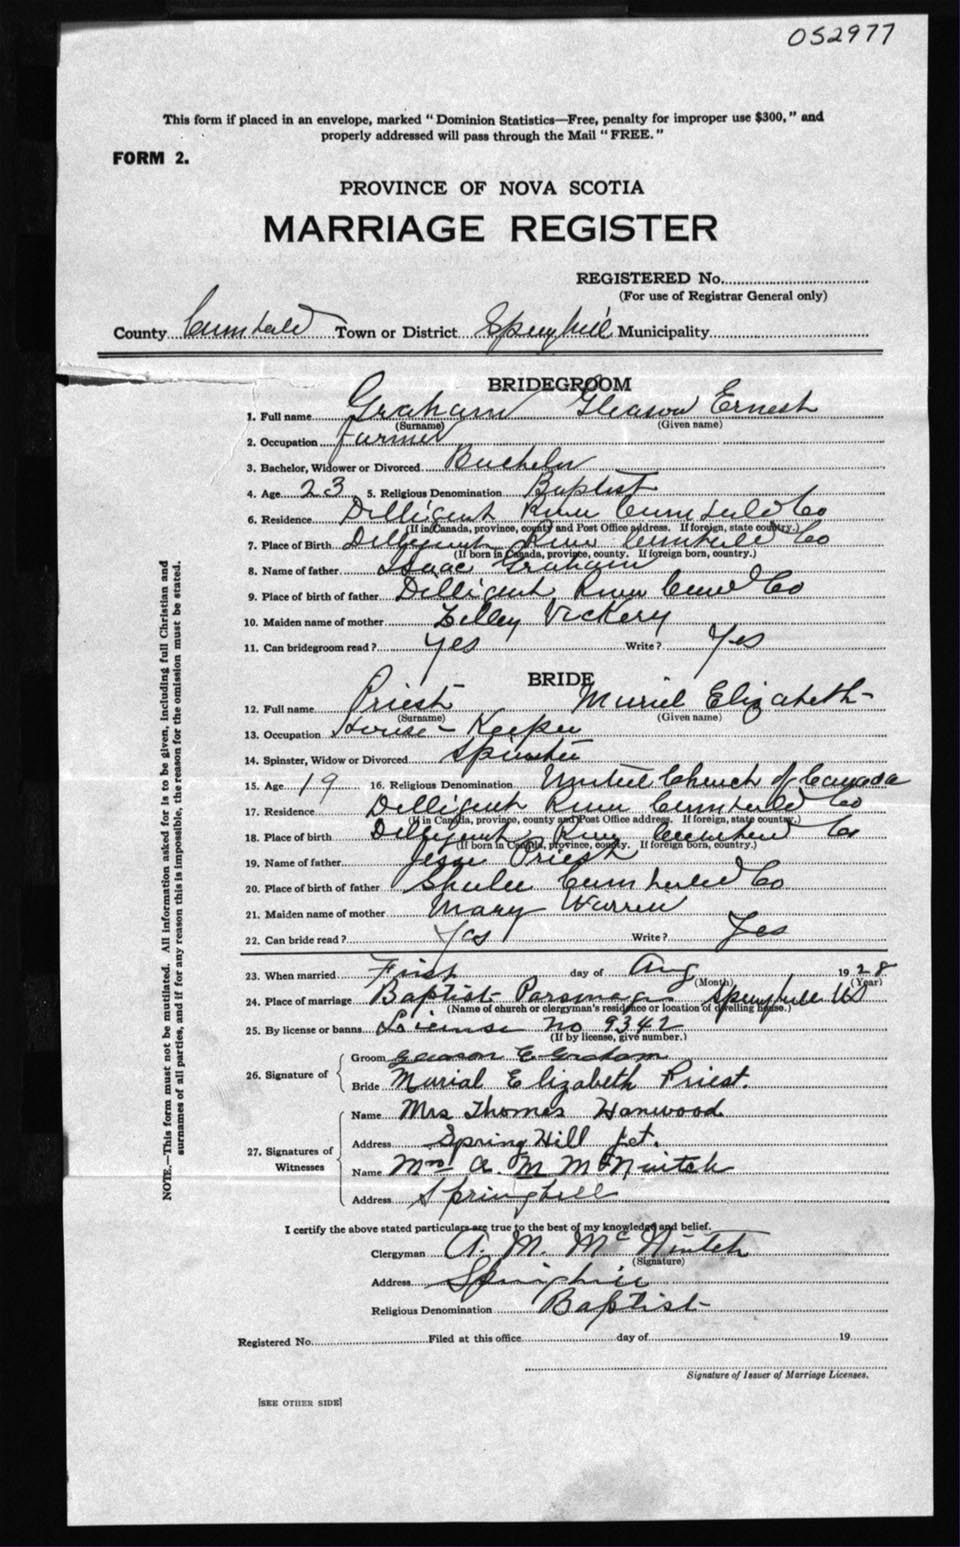 052977
This form if placed in an envelope, marked "Dominion Statistics—Free, penalty for improper use $300," and
properly addressed will pass through the Mail "FREE."
FORM 2.
PROVINCE OF NOVA SCOTIA
MARRIAGE REGISTER
REGISTERED No.
(For use of Registrar General only)
County Cumberld Town or District Springhill Municipality
BRIDEGROOM
1. Full name Graham Gleason Ernest
(Surname) (Given name)
2. Occupation Farmer
3. Bachelor, Widower or Divorced Bachelor
4. Age 23 5. Religious Denomination Baptist
6. Residence Dilligent River Cumberld Co
(If in Canada, province, county and Post Office address. If foreign, state country.)
7. Place of Birth Dilligent River Cumberld Co
(If born in Canada, province, county. If foreign born, country.)
8. Name of father Isaac Graham
9. Place of birth of father Dilligent River Cumd Co
10. Maiden name of mother Lilley Vickery
11. Can bridegroom read? yes Write? Yes
BRIDE
12. Full name Priest Muriel Elizabeth
(Surname) (Given name)
13. Occupation House-Keeper
14. Spinster, Widow or Divorced Spinster
15. Age 19 16. Religious Denomination United Church of Canada
17. Residence Dilligent River Cumberld Co
(If in Canada, province, county and Post Office address. If foreign, state country.)
18. Place of birth Dilligent River Co
(If born in Canada, province, county. If foreign born, country.)
19. Name of father Jesse Priest
20. Place of birth of father Shulee Cumberld Co
21. Maiden name of mother Mary Warren
22. Can bride read? Yes Write? Yes
23. When married First day of Aug 1928
(Month) (Year)
24. Place of marriage Baptist Parsonage Springhill NS
(Name of church or clergyman's residence or location of dwelling house.)
25. By license or banns License no 9342
(If by license, give number.)
26. Signature of
Groom Gleason E Graham
Bride Murial Elizabeth Priest.
27. Signatures of Witnesses
Name Mrs Thomas Harwood
Address Spring Hill Jct.
Name Mrs A. M McNintch
Address Springhill
I certify the above stated particulars are true to the best of my knowledge and belief.
Clergyman A. M. McNintch
(Signature)
Address Springhill
Religious Denomination Baptist
Registered No. Filed at this office day of 19
Signature of Issuer of Marriage Licenses.
[SEE OTHER SIDE]
NOTE.—This form must not be mutilated. All information asked for is to be given, including full Christian and
surnames of all parties, and if for any reason this is impossible, the reason for the omission must be stated.